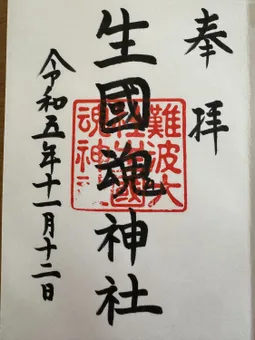 奉拝
生國魂神社
令和五年十一月十二日
難波大
生國
魂神